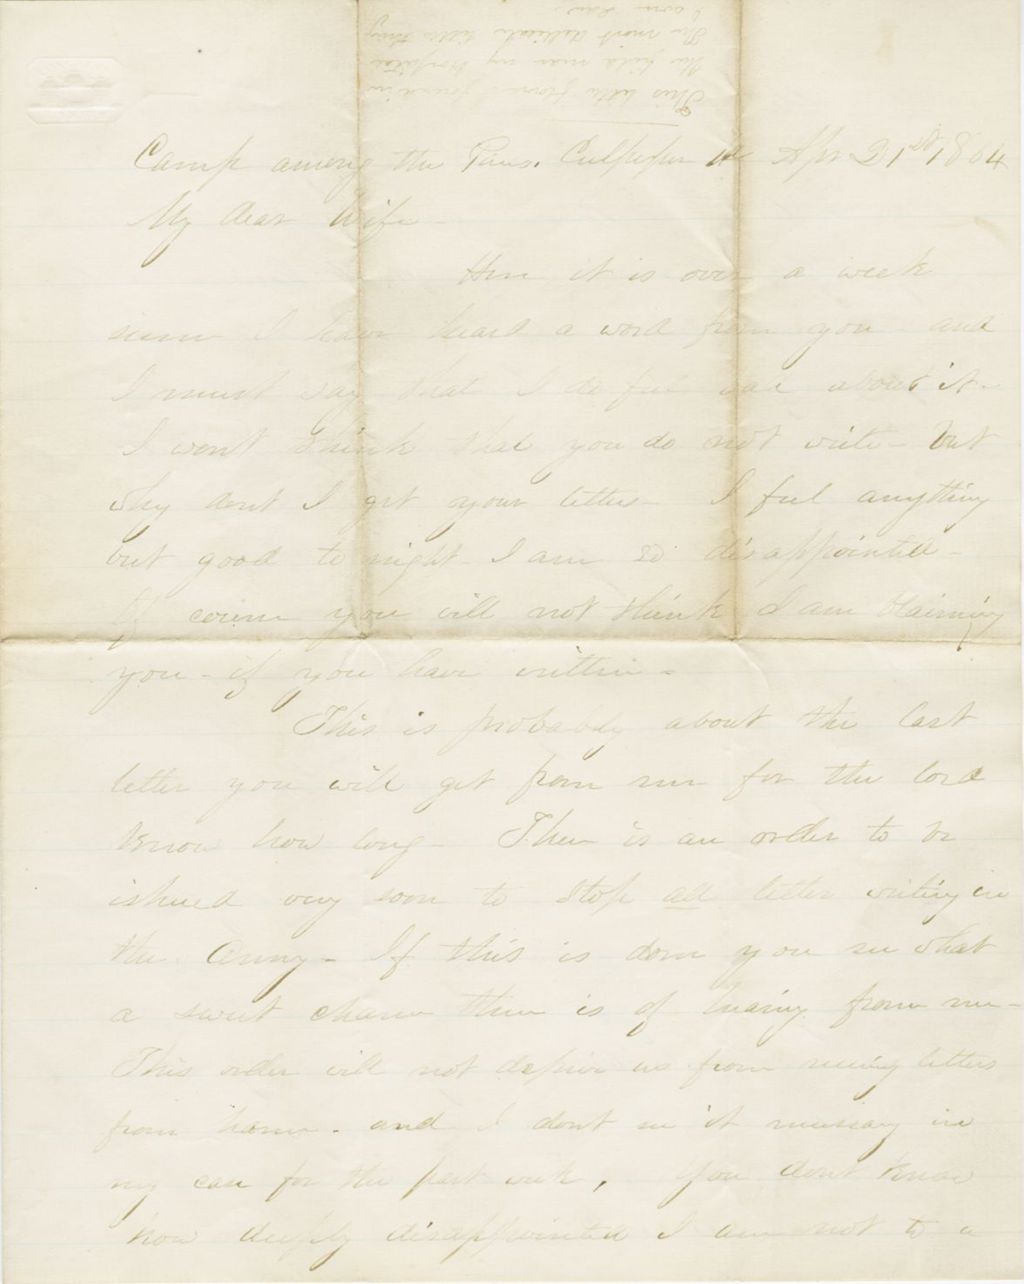 This little flower I found in
the field near my Hospital
The most delicate little thing
I ever saw.
Camp among the Pines. Culpeper Va Apr 21st 1864
My dear Wife -
Here it is over a week
since I have heard a word from you - and
I must say that I do feel bad about it -
I wont think that you do not write - but
why dont I get your letters - I feel anything
but good to night - I am so disappointed -
Of course you will not think I am blaming
you - if you have written -
This is probably about the last
letter you will get from me for the lord
knows how long - There is an order to be
ishued very soon to stop all letter writing in
the Army - If this is done you see what
a sweet chance there is of hearing from me -
This order will not deprive us from receiving letters
from home - and I dont see it necessary in
my case for the past week, You dont know
how deeply disappointed I am not to a